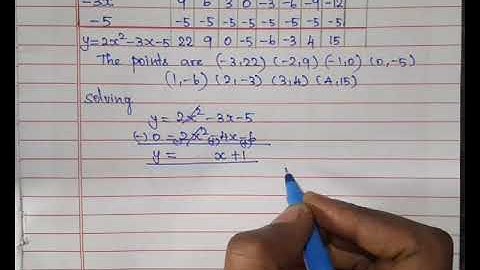 -3x 9 6 3 0 -3 -6 -9 -12
-5 -5 -5 -5 -5 -5 -5 -5 -5
y=2x²-3x-5 22 9 0 -5 -6 -3 4 15
The points are (-3,22) (-2,9) (-1,0) (0,-5)
(1,-6) (2,-3) (3,4) (4,15)
Solving
y = 2x²-3x-5
(-) 0 = 2x²-4x-6
y = x+1